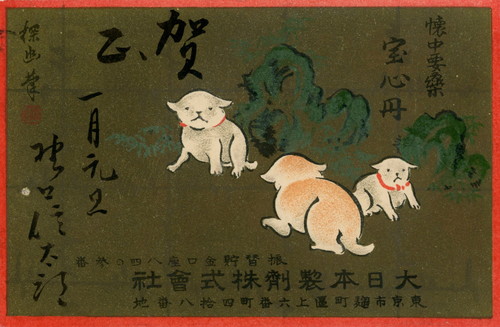 懷中要藥
宝心丹
賀正
探幽筆
一月元旦
振替貯金口座八四〇参番
大日本製劑株式會社
東京市麹町區上六番町四拾八番地